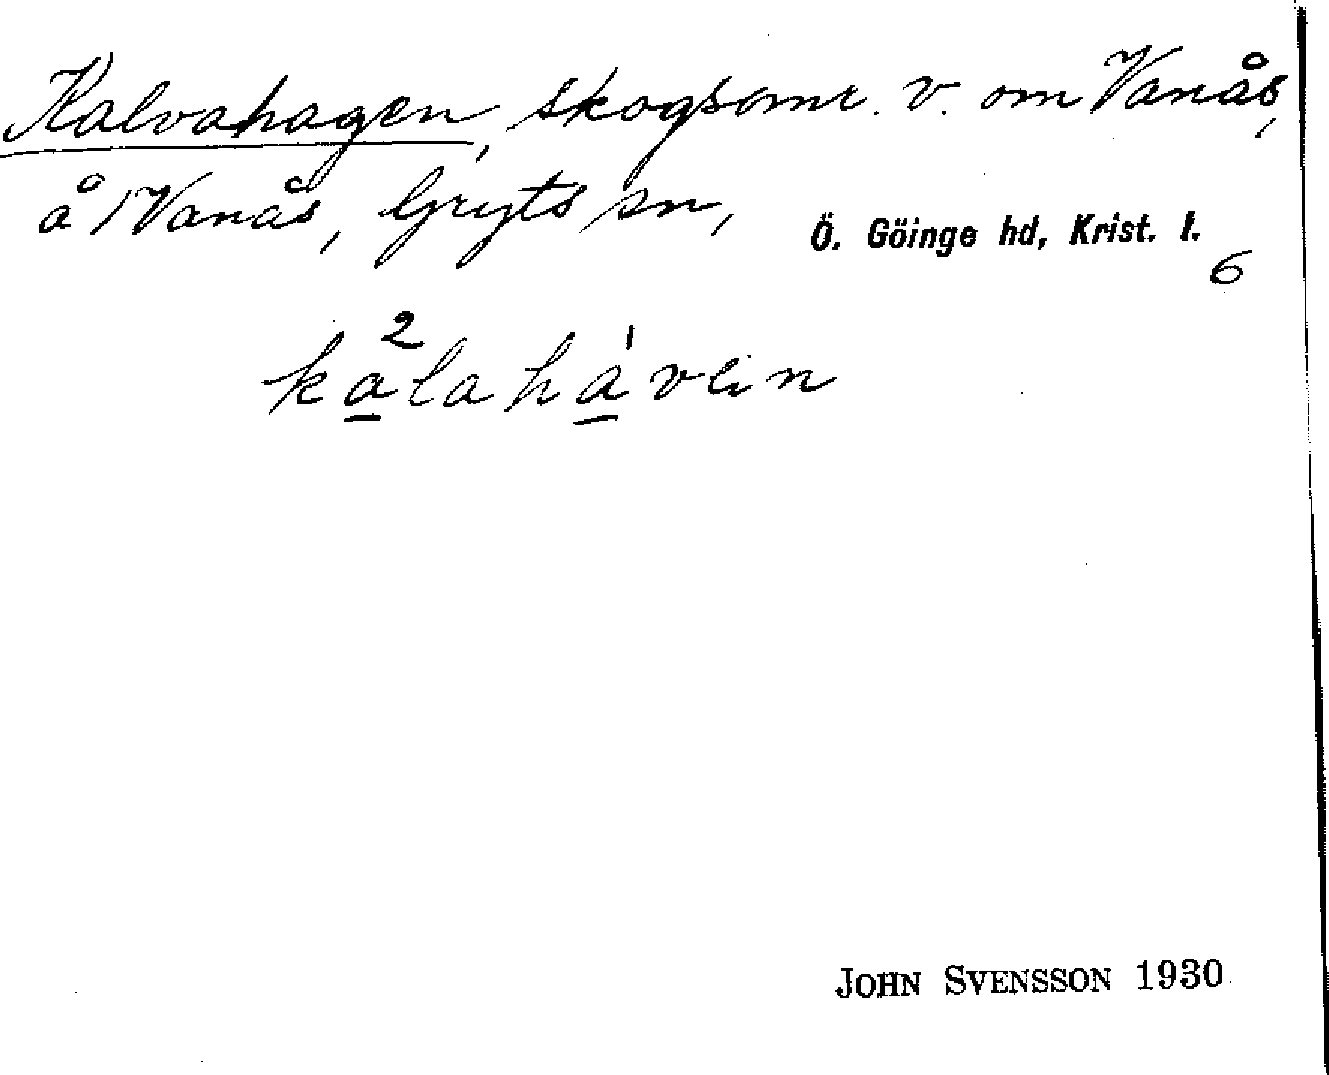 Kalvahagen, skogsomr. v. om Vanås,
å Vanås, Gryts sn, Ö. Göinge hd, Krist. l.
6
ka̱²lahá̱vein
JOHN SVENSSON 1930